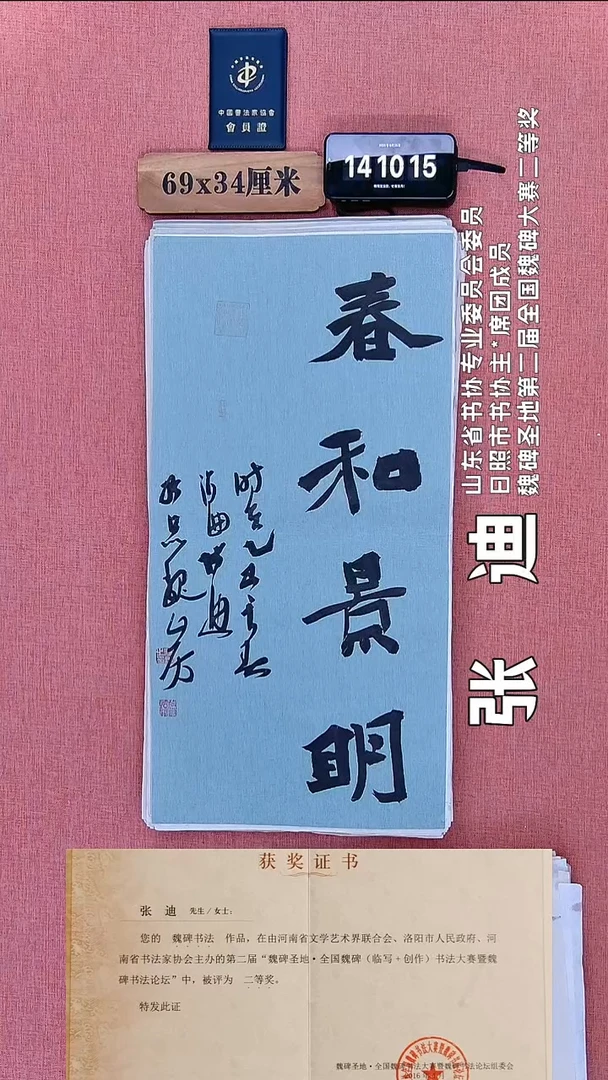 中國書法家協會
會員證
69x34厘米
14 10 15
山东省书协专业委员会委员
日照市书协主*席团成员
魏碑圣地第二届全国魏碑大赛二等奖
张 迪
春和景明
获奖证书
张 迪 先生/女士：
您的 魏碑书法 作品，在由河南省文学艺术界联合会、洛阳市人民政府、河
南省书法家协会主办的第二届“魏碑圣地·全国魏碑（临写+创作）书法大赛暨魏
碑书法论坛”中，被评为 二等奖。
特发此证
魏碑圣地·全国魏碑书法大赛暨魏碑书法论坛组委会